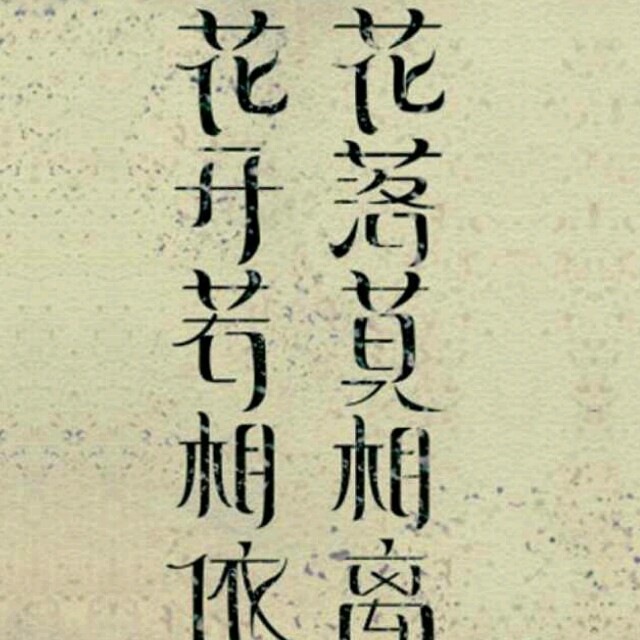 花开若相依
花落莫相离